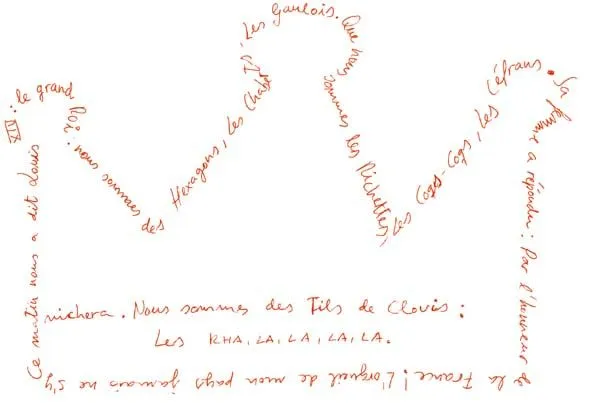 Ce matin nous a dit Louis
XIV : le grand Roi : nous sommes des
Hexagons, Les
Les Gaulois. Que nous
sommes les Richettes,
Les Coqs-Coqs, Les Céfrans.
Sa femme a réponder : Par l'honneur
de la France ! L'orgueil de mon pays jamais ne s'y
nichera. Nous sommes des Fils de Clovis :
Les RHA, LA, LA, LA, LA.